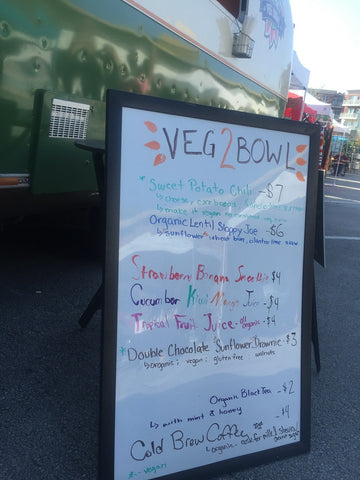 VEG2BOWL
* Sweet Potato Chili - $7
↳ cheese, cornbread,
↳ make it vegan
Organic Lentil Sloppy Joe - $6
↳ sunflower wheat bun, cilantro lime slaw
Strawberry Banana Smoothie $4
Cucumber Kiwi Mango Juice - $4
Tropical Fruit Juice - all organic - $4
* Double Chocolate Sunflower Brownie - $3
↳ organic; vegan; gluten free walnuts
Organic Black Tea - $2
↳ with mint & honey
- $4
Cold Brew Coffee
↳ organic - ask for milk &
* - vegan